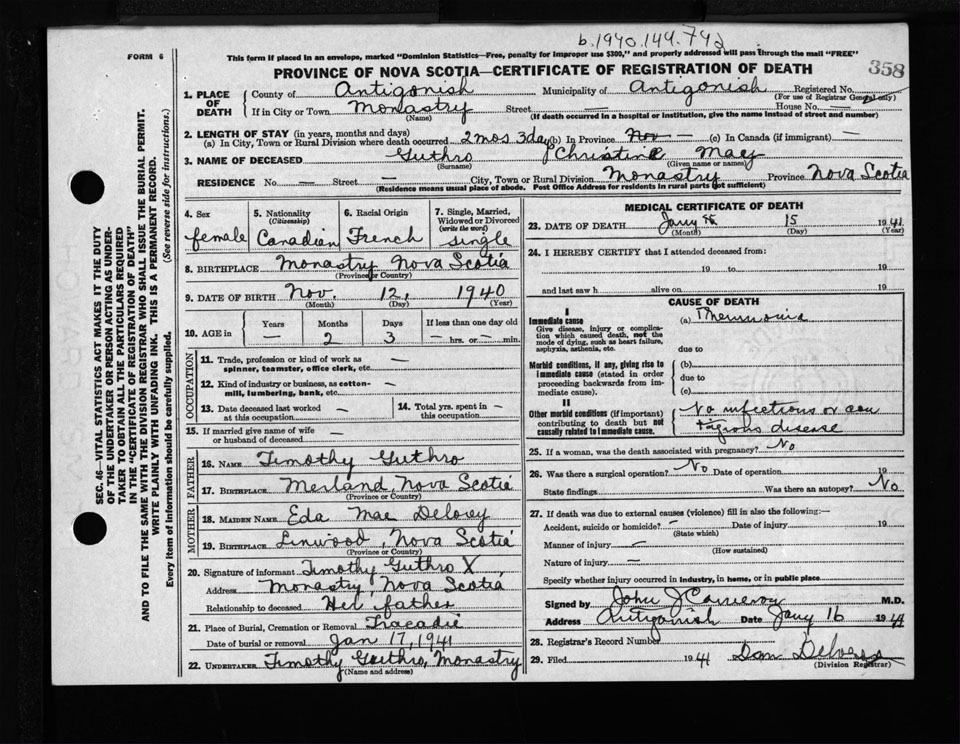 b.1940.149.742
FORM 6
This form if placed in an envelope, marked "Dominion Statistics—Free, penalty for improper use $300," and properly addressed will pass through the mail "FREE"
PROVINCE OF NOVA SCOTIA—CERTIFICATE OF REGISTRATION OF DEATH
358
1. PLACE OF DEATH County of Antigonish Municipality of Antigonish Registered No.
(For use of Registrar General only)
If in City or Town Monastry Street — House No. —
(Name) (If death occurred in a hospital or institution, give the name instead of street and number)
2. LENGTH OF STAY (in years, months and days)
(a) In City, Town or Rural Division where death occurred 2 mos 3 day (b) In Province Nov — (c) In Canada (if immigrant) —
3. NAME OF DECEASED Guthro Christine Mary
(Surname) (Given name or names)
RESIDENCE No. — Street — City, Town or Rural Division Monastry Province Nova Scotia
(Residence means usual place of abode. Post Office Address for residents in rural parts not sufficient)
4. Sex
female
5. Nationality
(Citizenship)
Canadian
6. Racial Origin
French
7. Single, Married, Widowed or Divorced
(write the word)
single
8. BIRTHPLACE Monastry Nova Scotia
(Province or Country)
9. DATE OF BIRTH Nov. 12, 1940
(Month) (Day) (Year)
10. AGE in Years Months Days If less than one day old
— 2 3 — hrs. or — min.
OCCUPATION
11. Trade, profession or kind of work as —
spinner, teamster, office clerk, etc.
12. Kind of industry or business, as cotton- —
mill, lumbering, bank, etc.
13. Date deceased last worked at this occupation —
14. Total yrs. spent in this occupation —
15. If married give name of wife or husband of deceased —
FATHER
16. NAME Timothy Guthro
17. BIRTHPLACE Merland, Nova Scotia
(Province or Country)
MOTHER
18. MAIDEN NAME Eda Mae Delorey
19. BIRTHPLACE Linwood, Nova Scotia
(Province or Country)
20. Signature of informant Timothy Guthro X
Address Monastry, Nova Scotia
Relationship to deceased Her father
21. Place of Burial, Cremation or Removal Tracadie
Date of burial or removal Jan 17, 1941
22. UNDERTAKER Timothy Guthro, Monastry
(Name and address)
MEDICAL CERTIFICATE OF DEATH
23. DATE OF DEATH Jany 15 1941
(Month) (Day) (Year)
24. I HEREBY CERTIFY that I attended deceased from:
19 to 19
and last saw h alive on 19
CAUSE OF DEATH
I
Immediate cause
Give disease, injury or complication which caused death, not the mode of dying, such as heart failure, asphyxia, asthenia, etc.
(a) Pneumonia
due to
Morbid conditions, if any, giving rise to immediate cause (stated in order proceeding backwards from immediate cause).
(b)
due to
(c)
II
Other morbid conditions (if important) contributing to death but not causally related to immediate cause.
No infectious or con
tagious disease
25. If a woman, was the death associated with pregnancy? No
26. Was there a surgical operation? No Date of operation 19
State findings Was there an autopsy? No
27. If death was due to external causes (violence) fill in also the following:—
Accident, suicide or homicide? — Date of injury 19
(State which)
Manner of injury —
(How sustained)
Nature of injury —
Specify whether injury occurred in industry, in home, or in public place
Signed by John J Cameron M.D.
Address Antigonish Date Jany 16 1941
28. Registrar's Record Number
29. Filed 1941 Dan
(Division Registrar)
SEC. 46—VITAL STATISTICS ACT MAKES IT THE DUTY
OF THE UNDERTAKER OR PERSON ACTING AS UNDER-
TAKER TO OBTAIN ALL THE PARTICULARS REQUIRED
IN THE "CERTIFICATE OF REGISTRATION OF DEATH"
AND TO FILE THE SAME WITH THE DIVISION REGISTRAR WHO SHALL ISSUE THE BURIAL PERMIT.
WRITE PLAINLY WITH UNFADING INK. THIS IS A PERMANENT RECORD.
Every item of information should be carefully supplied. (See reverse side for instructions.)